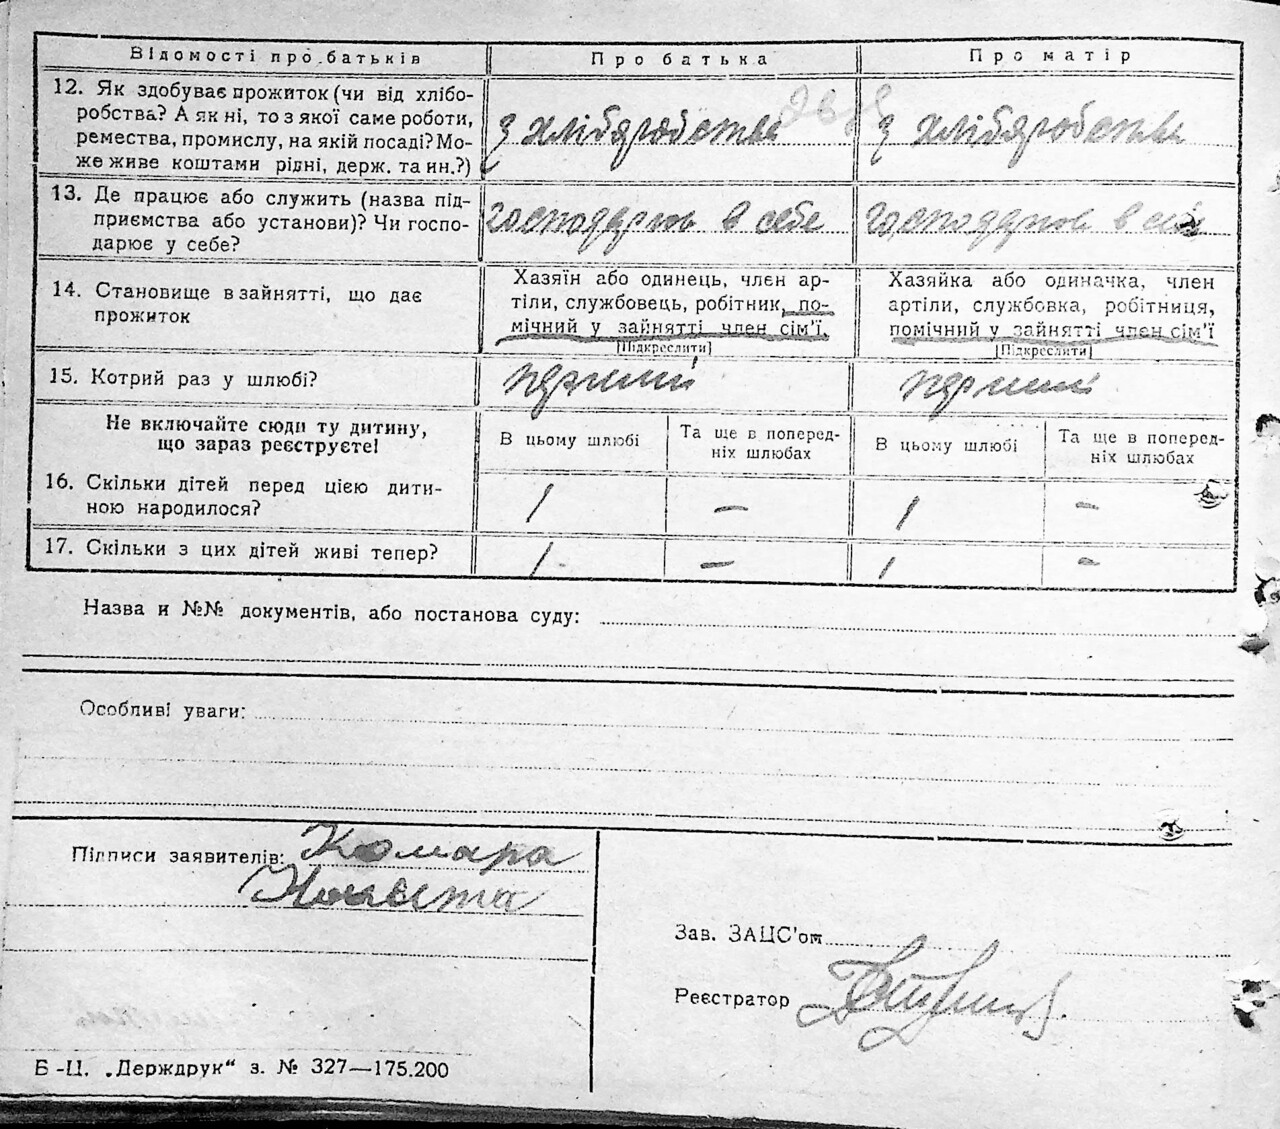 Відомості про батьків
Про батька
Про матір
12. Як здобуває прожиток (чи від хлібо-
робства? А як ні, то з якої саме роботи,
ремества, промислу, на якій посаді? Мо-
же живе коштами рідні, держ. та ин.?)
з хліборобства
з хліборобства
13. Де працює або служить (назва під-
приємства або установи)? Чи госпо-
дарює у себе?
господарює в себе
господарює в себе
14. Становище в зайнятті, що дає
прожиток
Хазяїн або одинець, член ар-
тіли, службовець, робітник, по-
мічний у зайнятті член сім'ї.
[Підкреслити]
Хазяйка або одиначка, член
артіли, службовка, робітниця,
помічний у зайнятті член сім'ї
[Підкреслити]
15. Котрий раз у шлюбі?
перший
перший
Не включайте сюди ту дитину,
що зараз реєструєте!
В цьому шлюбі
Та ще в поперед-
ніх шлюбах
В цьому шлюбі
Та ще в поперед-
ніх шлюбах
16. Скільки дітей перед цією дити-
ною народилося?
1
—
1
—
17. Скільки з цих дітей живі тепер?
1
—
1
—
Назва и №№ документів, або постанова суду:
Особливі уваги:
Підписи заявителів: Комара
Зав. ЗАЦС'ом
Реєстратор
Б-Ц. „Держдрук“ з. № 327—175.200